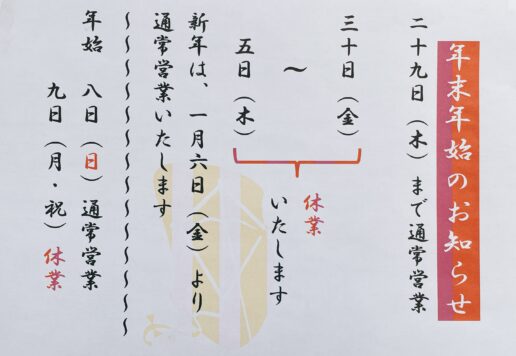 年末年始のお知らせ
二十九日（木）まで通常営業
三十日（金）
〜
五日（木）
休業
いたします
新年は、一月六日（金）より
通常営業いたします
〜〜〜〜〜〜〜〜〜〜〜〜〜
年始　八日（日）通常営業
九日（月・祝）休業